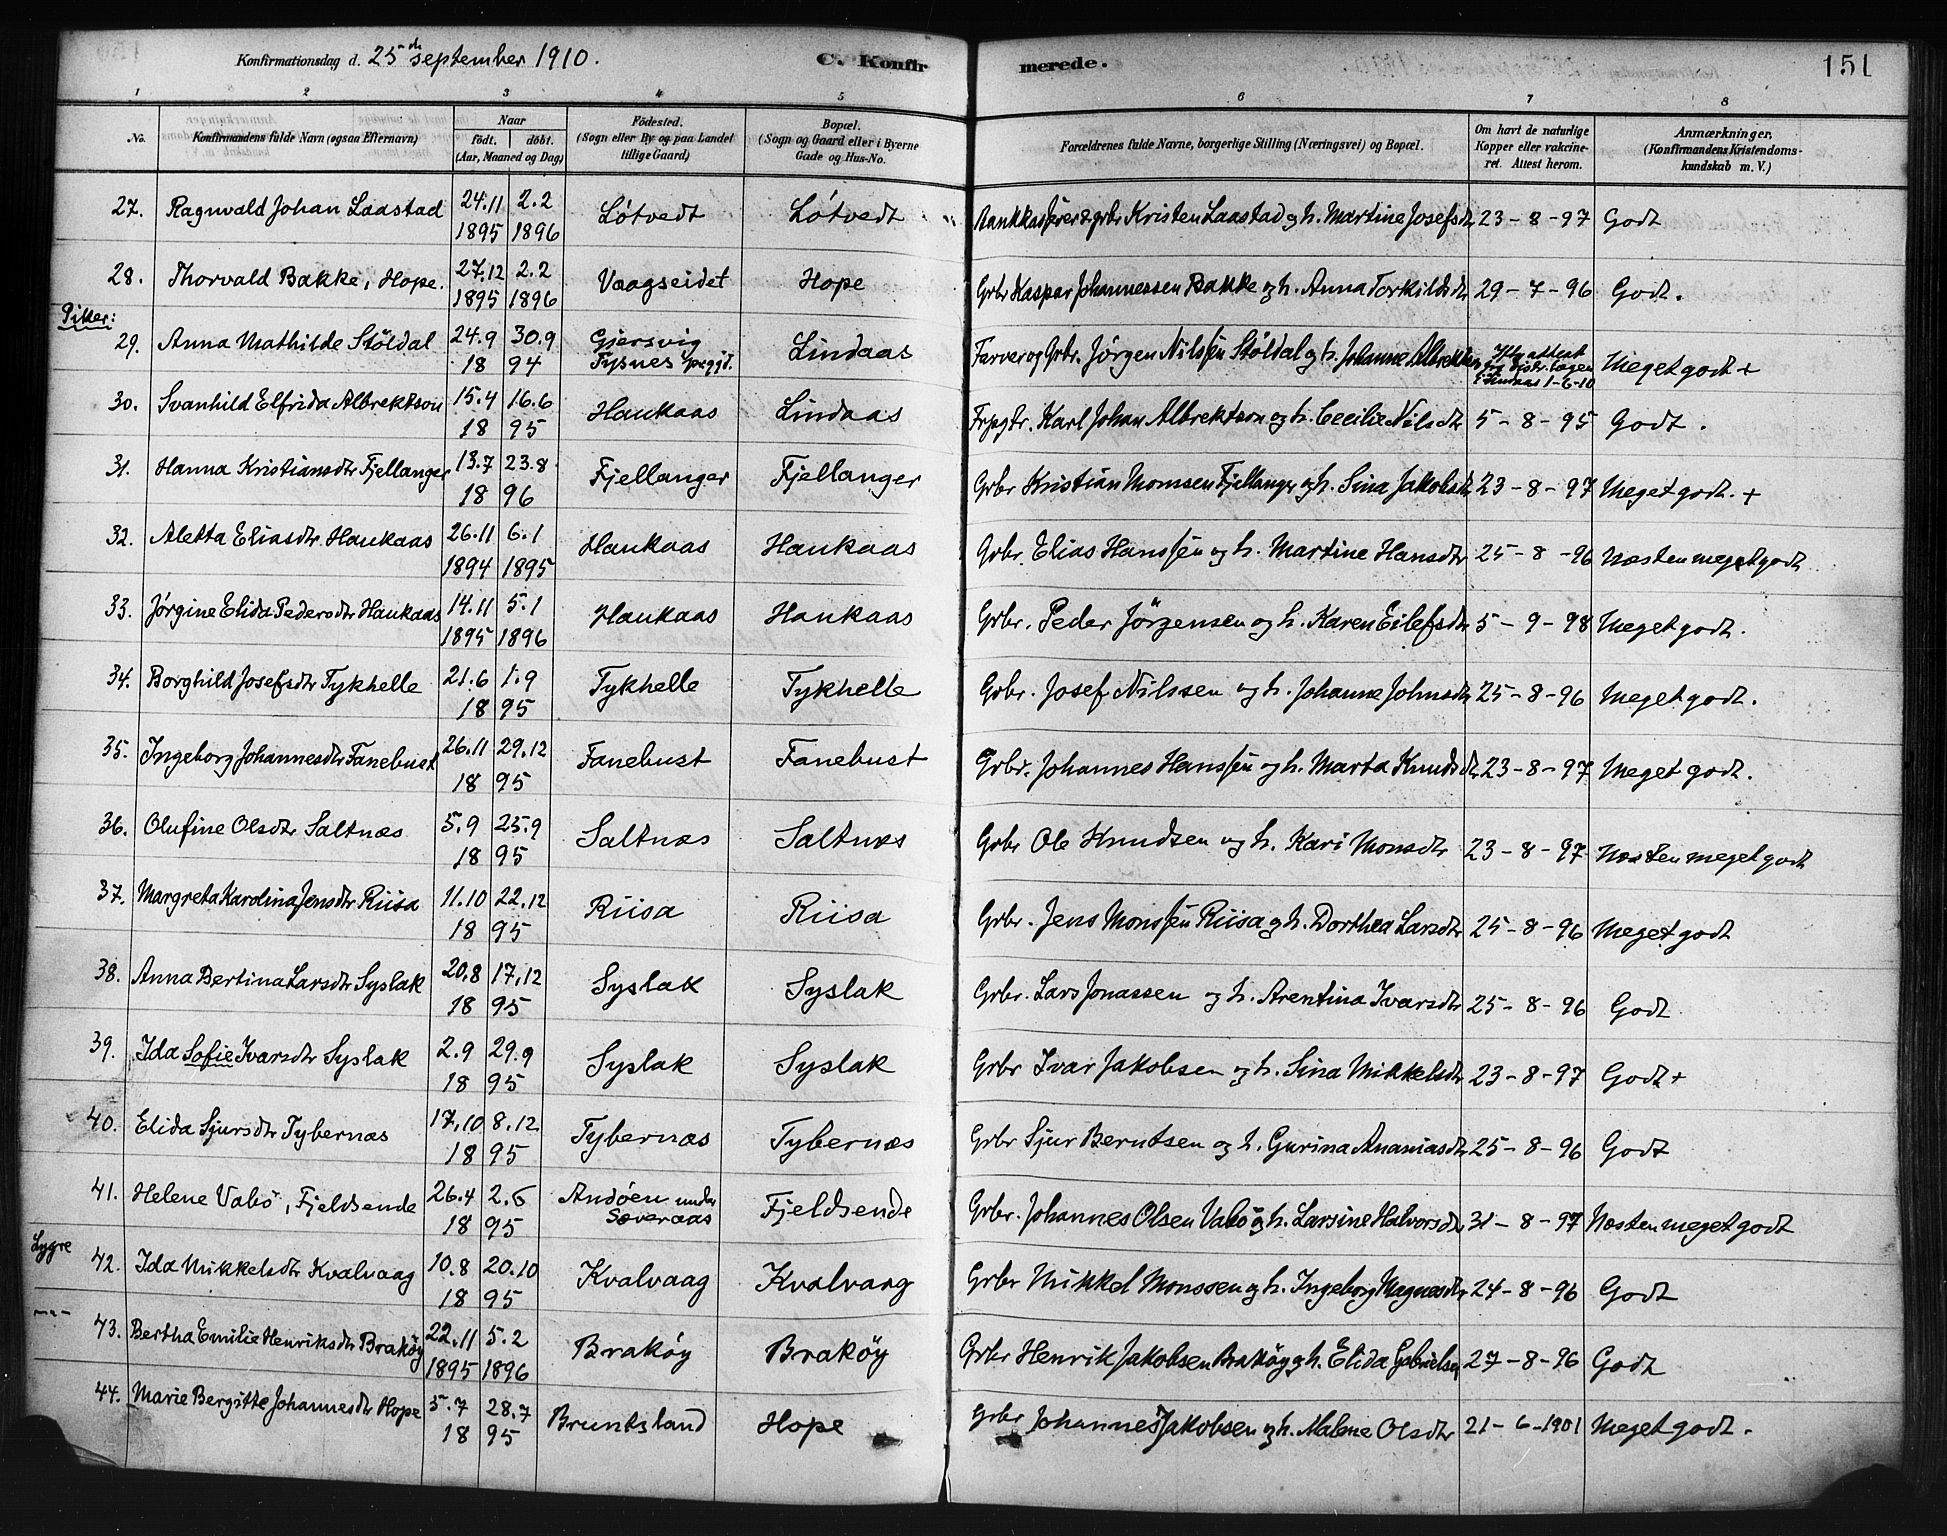 Konfirmationsdag d. 25de september 1910. C. Konfirmerede. 151
1 2 3 4 5 6 7 8
No. Konfirmandens fulde Navn (ogsaa Efternavn) Naar födt. döbt. (Aar, Maaned og Dag) Födested. (Sogn eller By og paa Landet tillige Gaard) Bopæl. (Sogn og Gaard eller i Byerne Gade og Hus-No. Forældrenes fulde Navne, borgerlige Stilling (Næringsvei) og Bopæl. Om havt de naturlige Kopper eller vakcineret. Attest herom. Anmærkninger, (Konfirmandens Kristendomskundskab m. V.)
27. Ragnvald Johan Laastad 24.11 1895 2.2 1896 Løtvedt Løtvedt Kristen Laastad og h. Martine Josefsdtr 23-8-97 Godt
28. Thorvald Bakke, Hope. 27.12 1895 2.2 1896 Vaagseidet Hope Grbr Kaspar Johannessen Bakke og h. Anna Torkildsdtr 29-7-96 Godt.
Piker:
29. Anna Mathilde Støldal 24.9 30.9 1894 Gjersvig Tysnes prgjd. Lindaas Farver og Grbr. Jørgen Nilssen Støldal og h. Johanne Albrektsen Meget godt +
30. Svanhild Elfrida Albrektson 15.4 16.6 1895 Haukaas Lindaas Karl Johan Albrektson og h. Cecilie Nilsdtr 5-8-95 Godt.
31. Hanna Kristiansdtr Fjellanger 13.7 23.8 1896 Fjellanger Fjellanger Grbr Kristian Monsen Fjellanger og h. Sina Jakobsdtr 23-8-97 Meget godt. +
32. Aletta Eliasdtr Haukaas 26.11 1894 6.1 1895 Haukaas Haukaas Grbr. Elias Hanssen og h. Martine Hansdtr 25-8-96 Næsten meget godt
33. Jørgine Elida Pedersdtr Haukaas 14.11 1895 5.1 1896 Haukaas Haukaas Grbr. Peder Jörgensen og h. Karen Eilefsdtr 5-9-98 Meget godt.
34. Borghild Josefsdtr Tykhelle 21.6 1.9 1895 Tykhelle Tykhelle Grbr. Josef Nilssen og h. Johanne Johnsdtr 25-8-96 Meget godt.
35. Ingeborg Johannesdtr Fanebust 26.11 29.12 1895 Fanebust Fanebust Grbr. Johannes Hanssen og h. Marta Knudsdtr 23-8-97 Meget godt.
36. Olufine Olsdtr Saltnæs 5.9 25.9 1895 Saltnæs Saltnæs Grbr Ole Knudsen og h. Kari Monsdtr 23-8-97 Næsten meget godt
37. Margreta Karolina Jensdtr Riisa 11.10 22.12 1895 Riisa Riisa Grbr. Jens Monssen Riisa og h. Dorthea Larsdtr 25-8-96 Meget godt
38. Anna Bertina Larsdtr Syslak 20.8 17.12 1895 Syslak Syslak Grbr. Lars Jonassen og h. Arentina Ivarsdtr 25-8-96 Godt
39. Ida Sofie Ivarsdtr Syslak 2.9 29.9 1895 Syslak Syslak Grbr Ivar Jakobsen og h. Sina Mikkelsdtr 23-8-97 Godt +
40. Elida Sjursdtr Tybernæs 17.10 8.12 1895 Tybernæs Tybernæs Grbr Sjur Berntsen og h. Gurina Ananiasdtr 25-8-96 Godt
41. Helene Vabø, Fjeldsende 26.4 2.6 1895 Andøen under Sæveraas Fjeldsende Grbr. Johannes Olsen Vabø og h. Larsine Halvorsdtr 31-8-97 Næsten meget godt
Lygre
42. Ida Mikkelsdtr Kvalvaag 10.8 20.10 1895 Kvalvaag Kvalvaag Grbr Mikkel Monssen og h. Ingeborg Magnesdtr 24-8-96 Godt
-"-
43. Bertha Emilie Henriksdtr Brakøy 22.11 1895 5.2 1896 Brakøy Brakøy Grbr Henrik Jakobsen Brakøy og h. Elida Gabrielsen 27-8-96 Godt
44. Marie Bergitte Johannesdtr Hope 5.7 28.7 1895 Bruntsland Hope Grbr Johannes Jakobsen og h. Malene Olsdtr 21-6-1901 Meget godt.